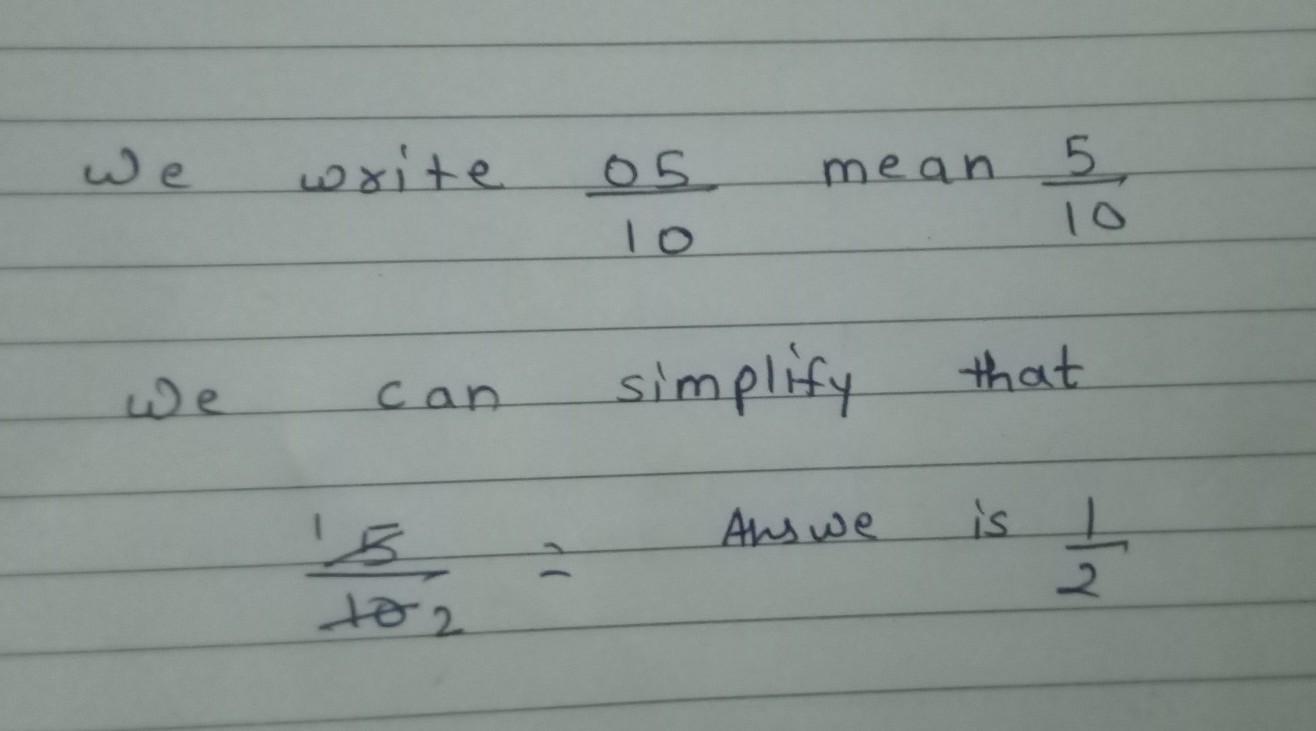 We write 05/10 mean 5/10
We can simplify that
1 5/10 2 = Answe is 1/2